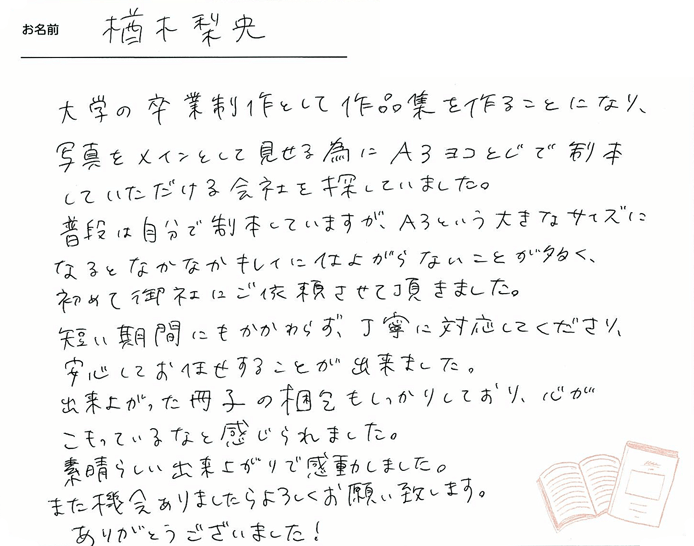 お名前 楢木梨央
大学の卒業制作として作品集を作ることになり、
写真をメインとして見せる為にA3ヨコとじで制本
していただける会社を探していました。
普段は自分で制本していますが、A3という大きなサイズに
なるとなかなかキレイに仕上がらないことが多く、
初めて御社にご依頼させて頂きました。
短い期間にもかかわらず、丁寧に対応してくださり、
安心してお任せすることが出来ました。
出来上がった冊子の梱包もしっかりしており、心が
こもっているなと感じられました。
素晴らしい出来上がりで感動しました。
また機会ありましたらよろしくお願い致します。
ありがとうございました！